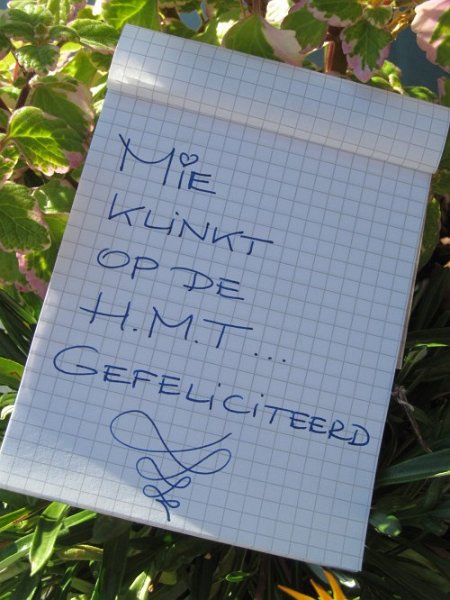 MiE
KLiNKT
OP DE
H.M.T...
GEFELiCiTEERD